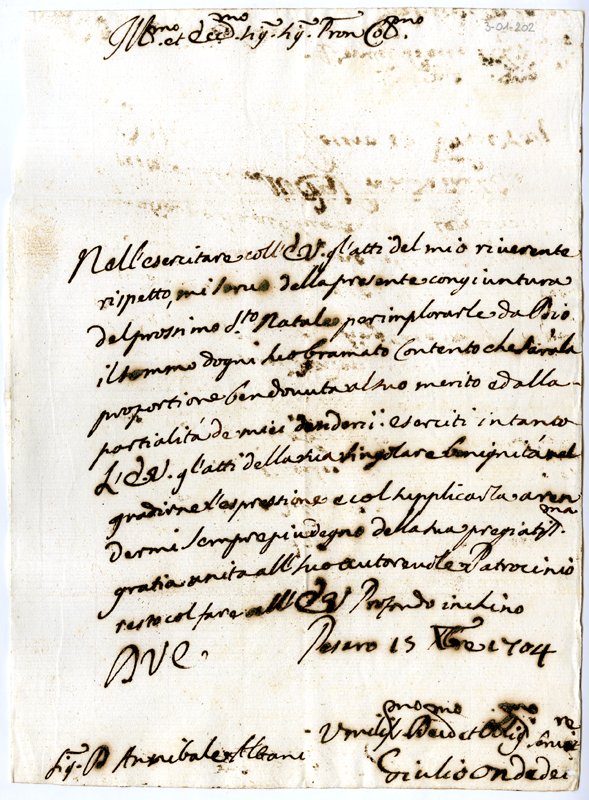 3-01-202
Ill.mo et Sig.r Sig.r Pron Col.mo
Nell'esercitare coll' EV. gl'atti del mio riverente
rispetto, mi servo della presente congiuntura
del prossimo S.to Natale per implorarle da Dio
il sommo dogni suo bramato Contento che sarà la
proportione ben dovuta al suo merito ed alla
partialitá de miei desiderij: eserciti intanto
L'EV. gl'atti della sua singolare benignitá nel
gradirne l'espressione e col supplicarla a ren
dermi sempre piu degno della sua pregiatiss.ma
gratia unita all' suo autorevole Patrocinio
resto col fare all' EV Profondo inchino
DVE. Pesaro 15 Xbre 1704
Umiliss.mo Devo.mo et Oblig.mo Servitore
Sig.r D Annibale Albani Giulio Ondedei